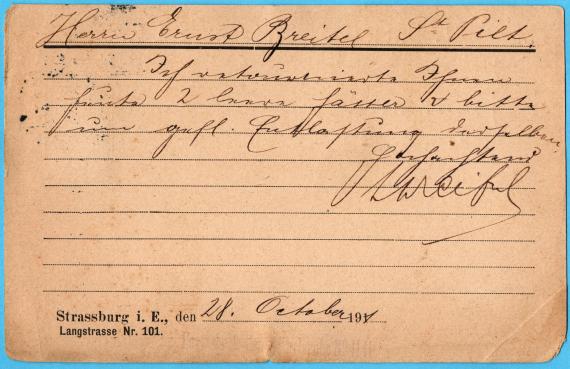 Herrn Ernst Breitel St Pilt.
Ich retournierte Ihnen
heute 2 leere Fässer & bitte
um gefl. Entlastung derselben.
Hochachtend
Strassburg i. E., den 28. October 1911
Langstrasse Nr. 101.